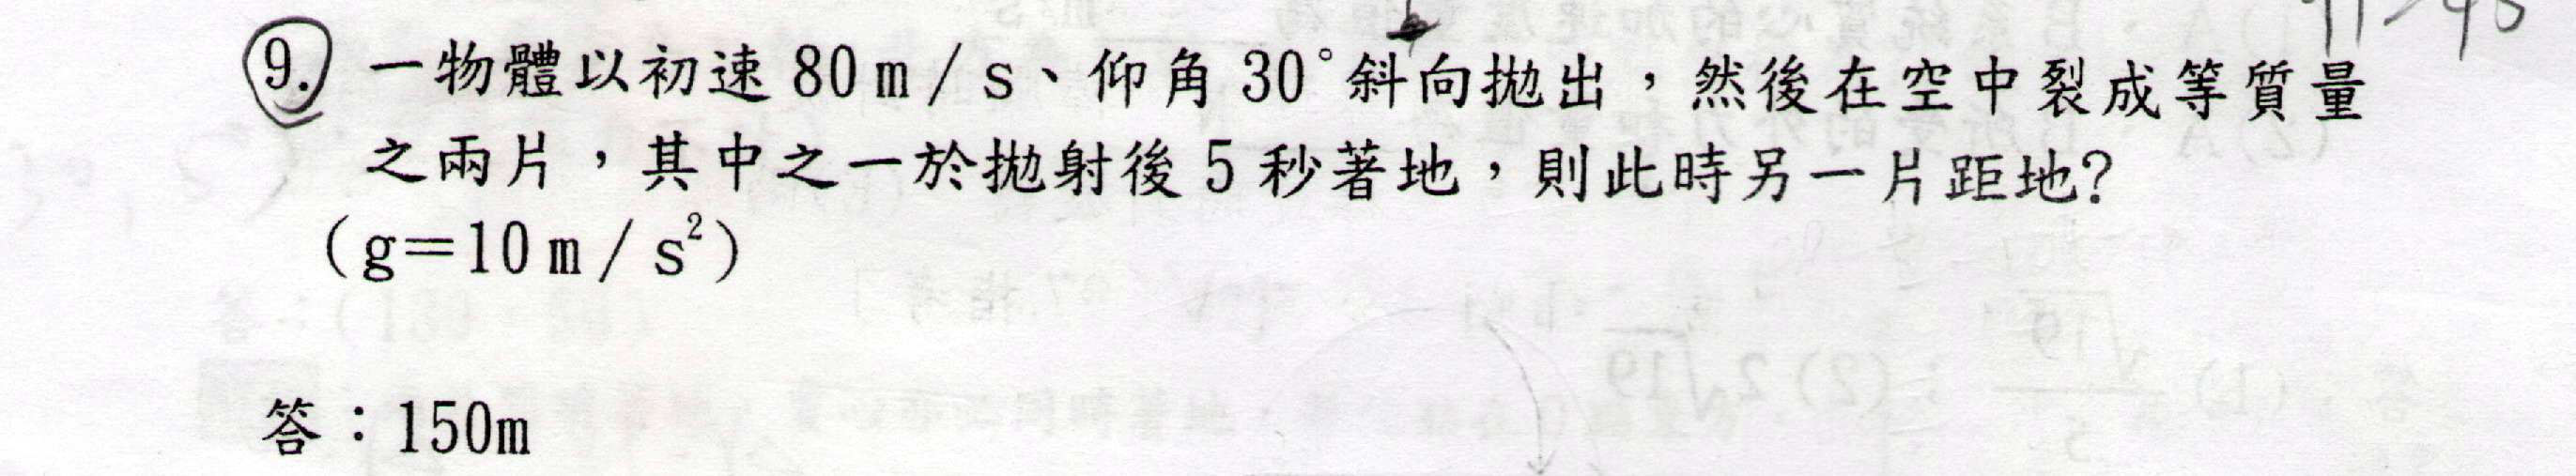 9. 一物體以初速 80 m / s、仰角 30°斜向拋出，然後在空中裂成等質量
之兩片，其中之一於拋射後 5 秒著地，則此時另一片距地?
(g=10 m / s²)
答：150m